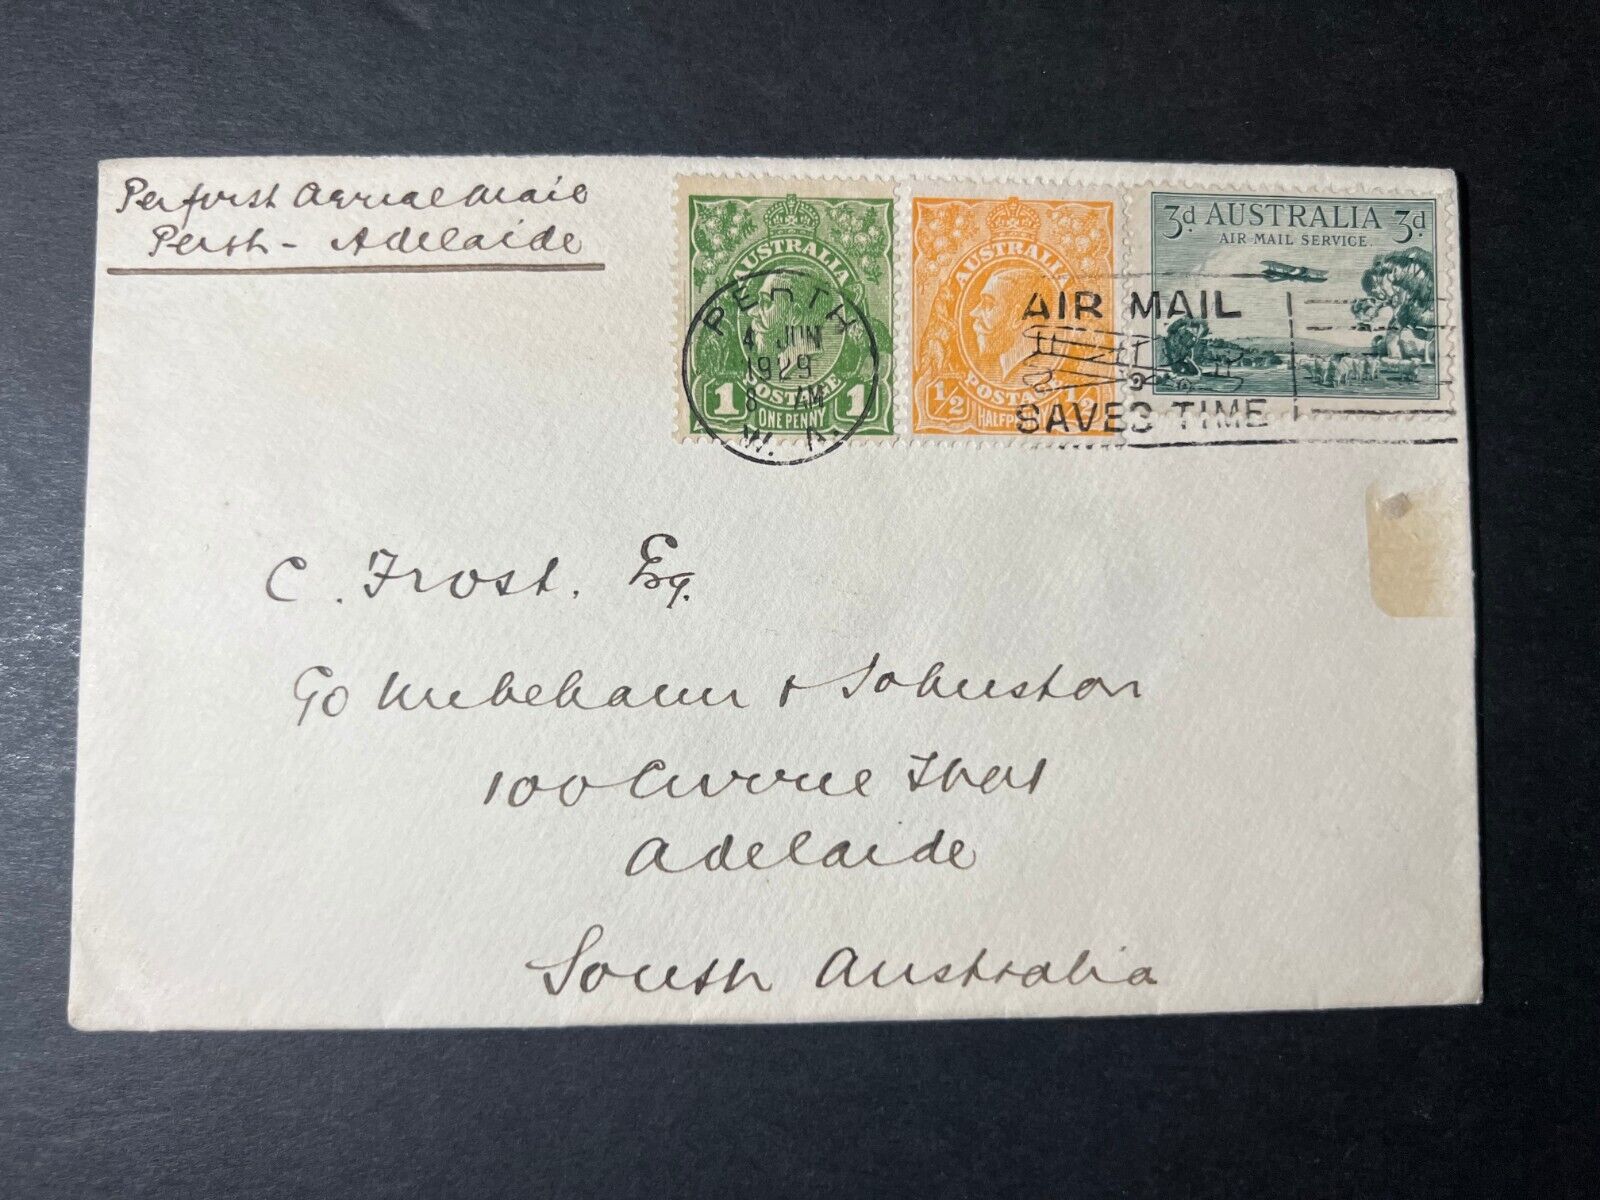 Per first Aerial Mail
Perth - Adelaide
AUSTRALIA
POSTAGE
1 ONE PENNY 1
AUSTRALIA
POSTAGE
1/2 HALFPENNY 1/2
3d AUSTRALIA 3d
AIR MAIL SERVICE
PERTH
4 JUN
1929
8 AM
W. A.
AIR MAIL
SAVES TIME
C. Frost. Esq.
c/o & Johnston
100 Currie
Adelaide
South Australia